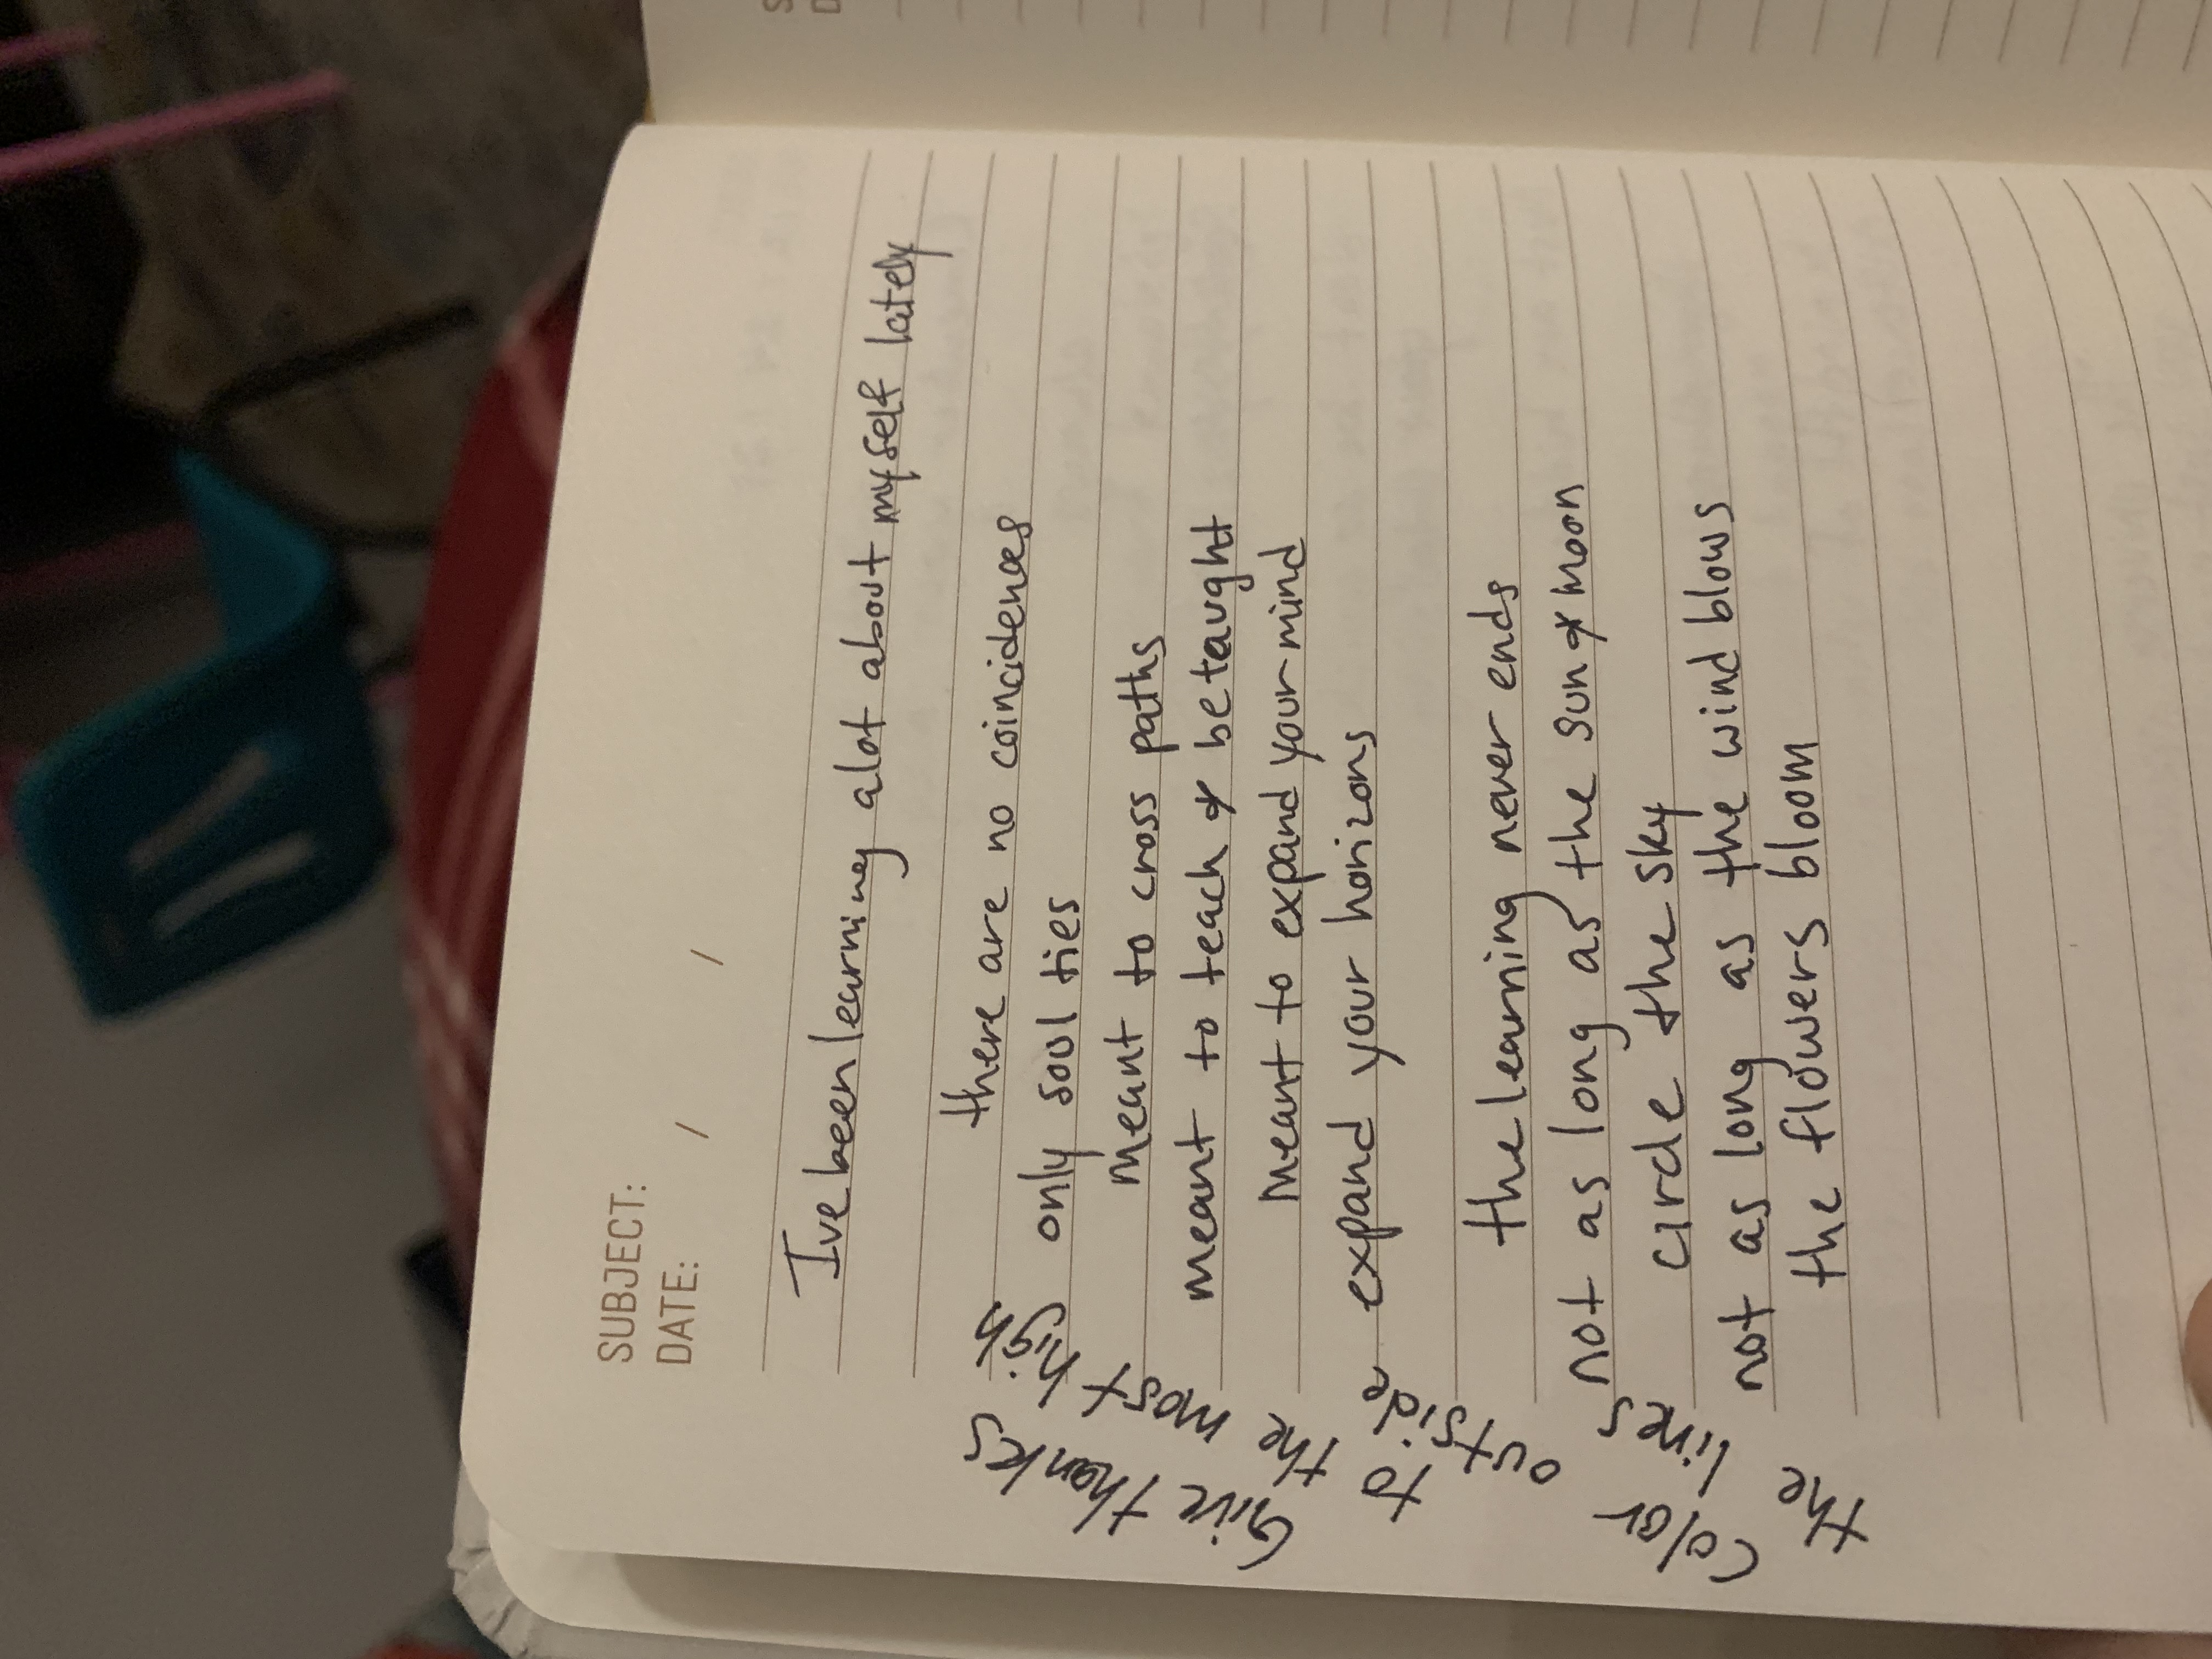 SUBJECT:
DATE: / /
Ive been learning alot about myself lately
there are no coincidences
only soul ties
meant to cross paths
meant to teach & be taught
meant to expand your mind
expand your horizons
the learning never ends
not as long as the sun & moon
circle the sky
not as long as the wind blows
the flowers bloom
Give thanks
to the most high
Color outside
the lines